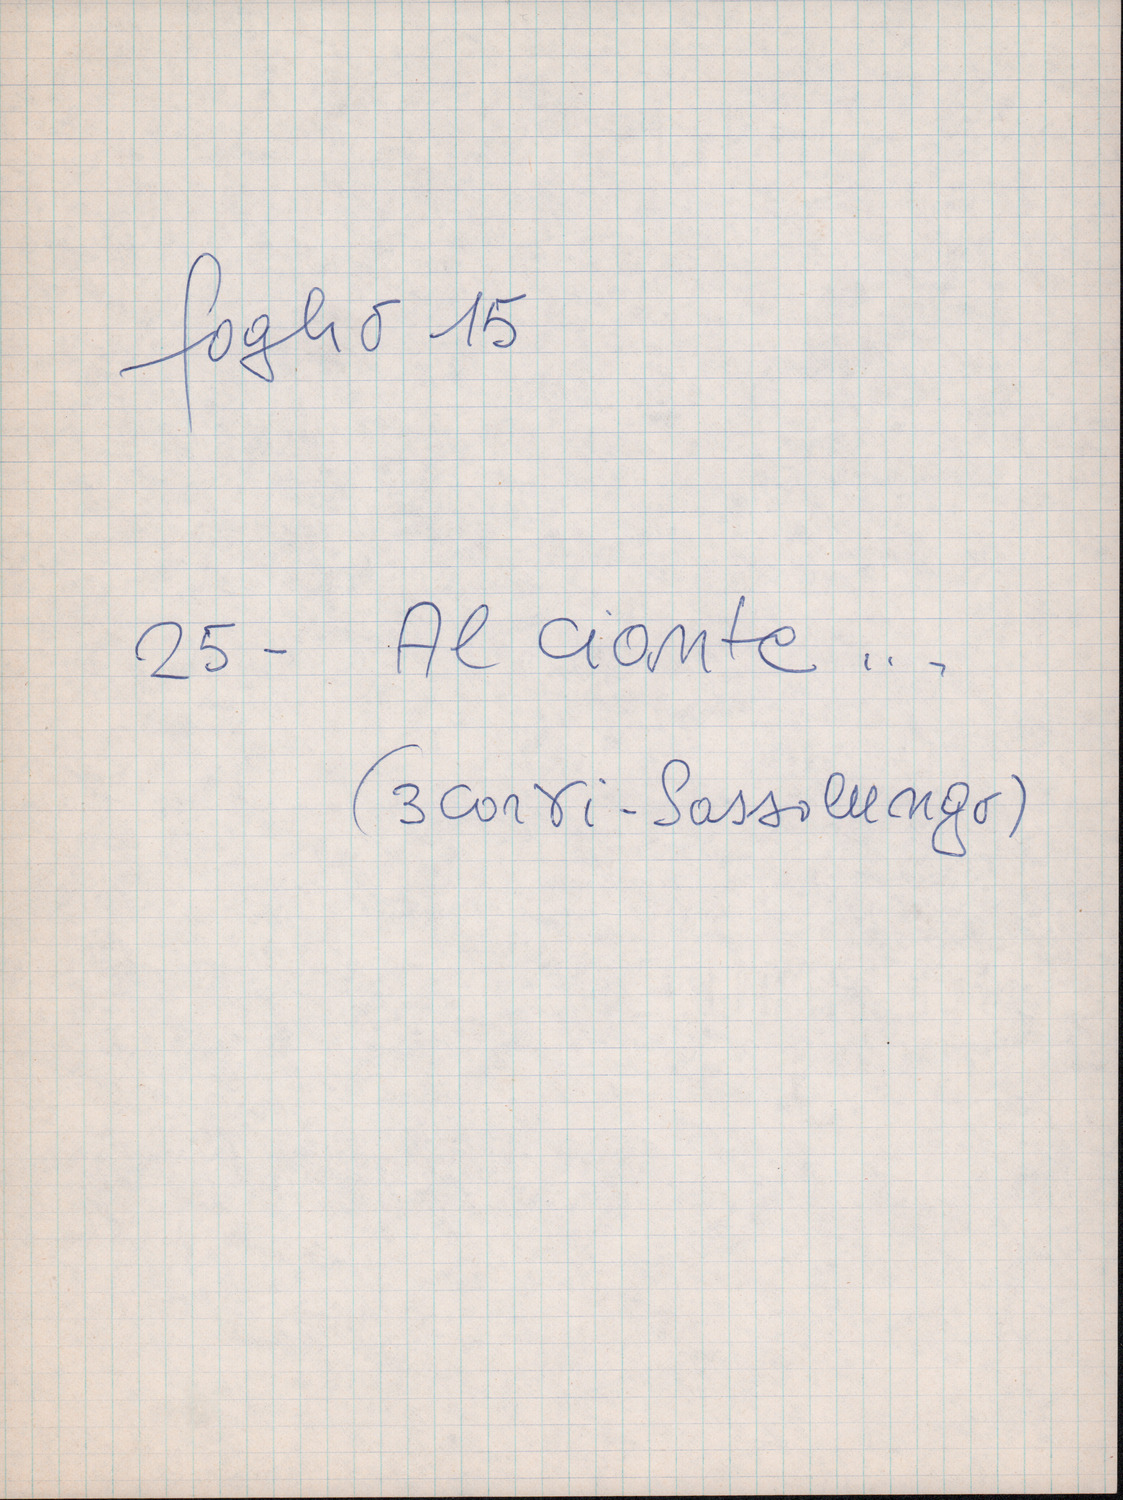 foglio 15
25- Al cionte ...
(3 corvi-Sassolungo)